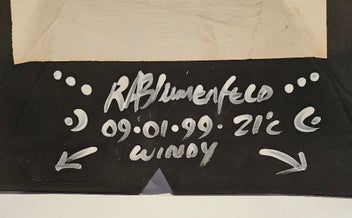 RABlumenfeld
09·01·99· 21°c
WINDY